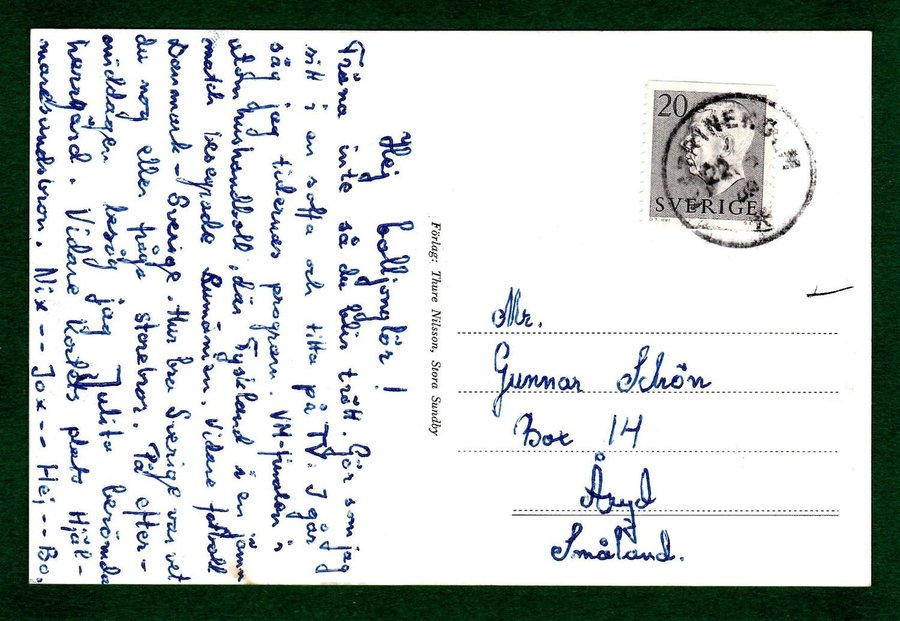 Hej bolljonglör!
Träna inte så du blir trött. Gör som jag
sitt i en soffa och titta på TV. I går
såg jag tidernas program. VM-finalen i
utomhushandboll, där Tyskland i en jämn
match besegrade Rumänien. Vidare fotboll
Danmark - Sverige. Hur bra Sverige var vet
du nog eller fråga storebror. På efter-
middagen besåg jag Julita berömda
herrgård. Vidare plats Hjäl-
maresundsbron. Nix -- Jox -- Hej -- Bo.
Förlag: Thure Nilsson, Stora Sundby
20
SVERIGE
Mr.
Gunnar Schön
Box 14
Åryd
Småland.